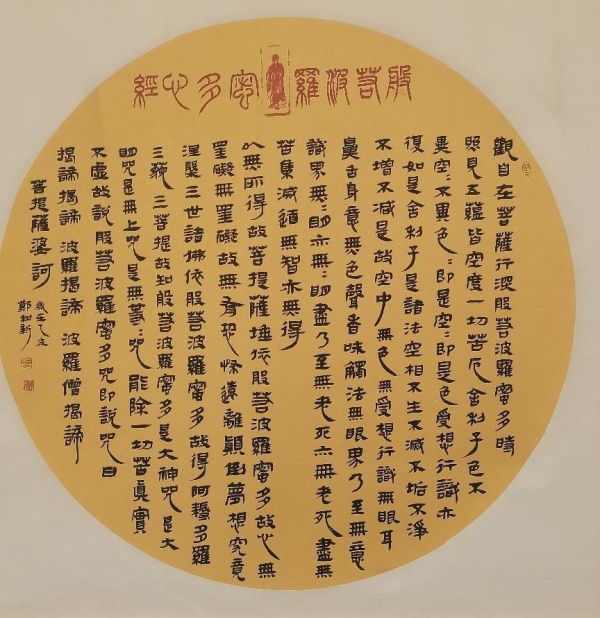 般若波羅蜜多心經
觀自在菩薩行深般若波羅蜜多時
照見五蘊皆空度一切苦厄舍利子色不
異空:不異色:即是空:即是色受想行識亦
復如是舍利子是諸法空相不生不滅不垢不淨
不增不減是故空中無色無受想行識無眼耳
鼻舌身意無色聲香味觸法無眼界乃至無意
識界無:明亦無:明盡乃至無老死亦無老死盡無
苦集滅道無智亦無得
以無所得故菩提薩埵依般若波羅蜜多故心無
罣礙無罣礙故無有恐怖遠離顛倒夢想究竟
涅槃三世諸佛依般若波羅蜜多故得阿耨多羅
三藐三菩提故知般若波羅蜜多是大神咒是大
明咒是無上咒是無等:咒能除一切苦真實
不虛故說般若波羅蜜多咒即說咒曰
揭諦揭諦 波羅揭諦 波羅僧揭諦
菩提薩婆訶
歲在乙
鄭和新